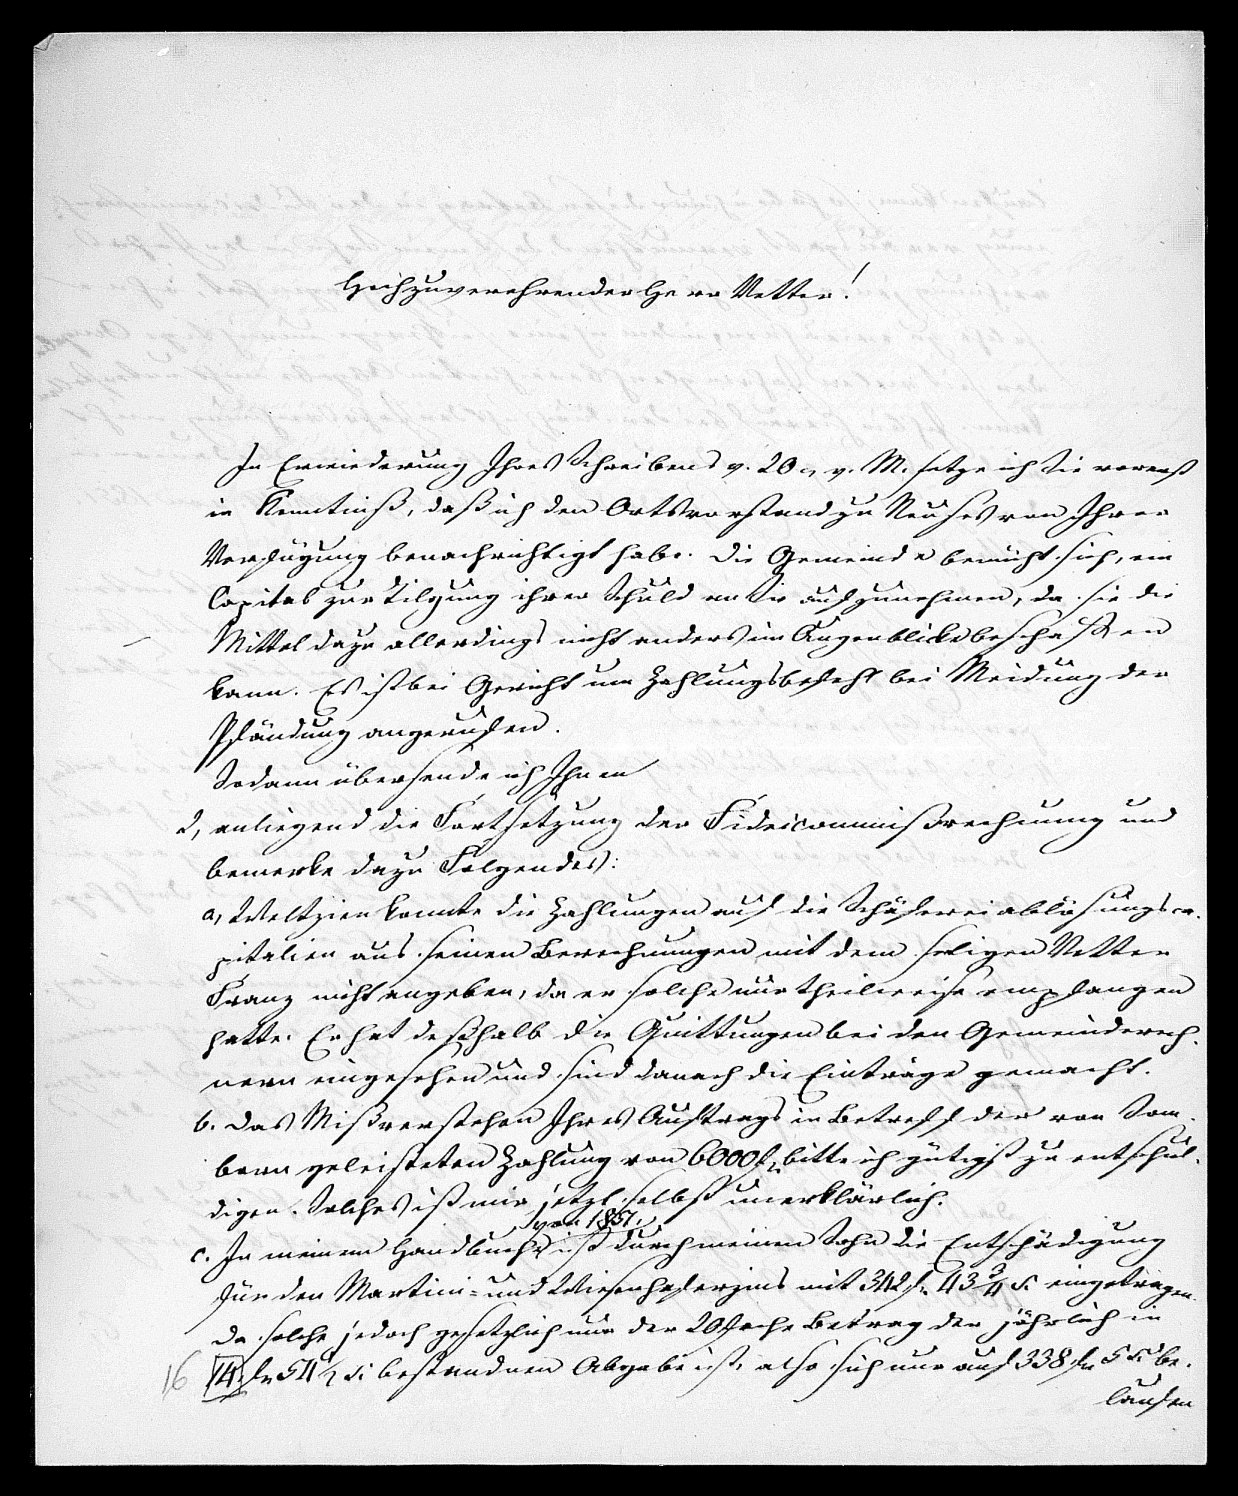 Hochzuverehrender Herr Vetter!
In Erwiederung Ihres Schreibens v. 20 v. M. setze ich Sie vorerst
in Kenntniß, daß ich den Ortsvorstand zu Neuses von Ihrer
Verfügung benachrichtigt habe. Die Gemeinde bemüht sich, ein
Capital zur Tilgung ihrer Schuld an Sie aufzunehmen, da sie die
Mittel dazu allerdings nicht anders im Augenblicke beschaffen
kann. Es ist bei Gericht um Zahlungsbefehl bei Meidung der
Pfändung angerufen.
Sodann übersende ich Ihnen
2, anliegend die Fortsetzung der Fideicommißrechnung und
bemerke dazu Folgendes:
a, Weltzien konnte die Zahlungen auf die Schäfereiablösungsca-
pitalien aus seinen Berechnungen mit dem seligen Vetter
Franz nicht angeben, da er solche nur theilweise empfangen
hatte. Er hat deßhalb die Quittungen bei den Gemeinderech-
nern eingesehen und sind danach die Einträge gemacht.
b. Das Mißverstehen Ihres Auftrags in Betreff der von Som-
bern geleisteten Zahlung von 6000 f. bitte ich gütigst zu entschul-
digen. Solches ist mir jetzt selbst unerklärlich.
von 1851.
c. In meinem Handbuche ist durch meinen Sohn die Entschädigung
für den Martini- und Wiesenhaferzins mit 342 f. 43 3/4 x eingetragen.
Da solche jedoch gesetzlich nur der 20fache Betrag der jährlich in
16 14 f. 54 1/2 x bestandnen Abgabe ist, also sich nur auf 338 f. 5 x be-
laufen